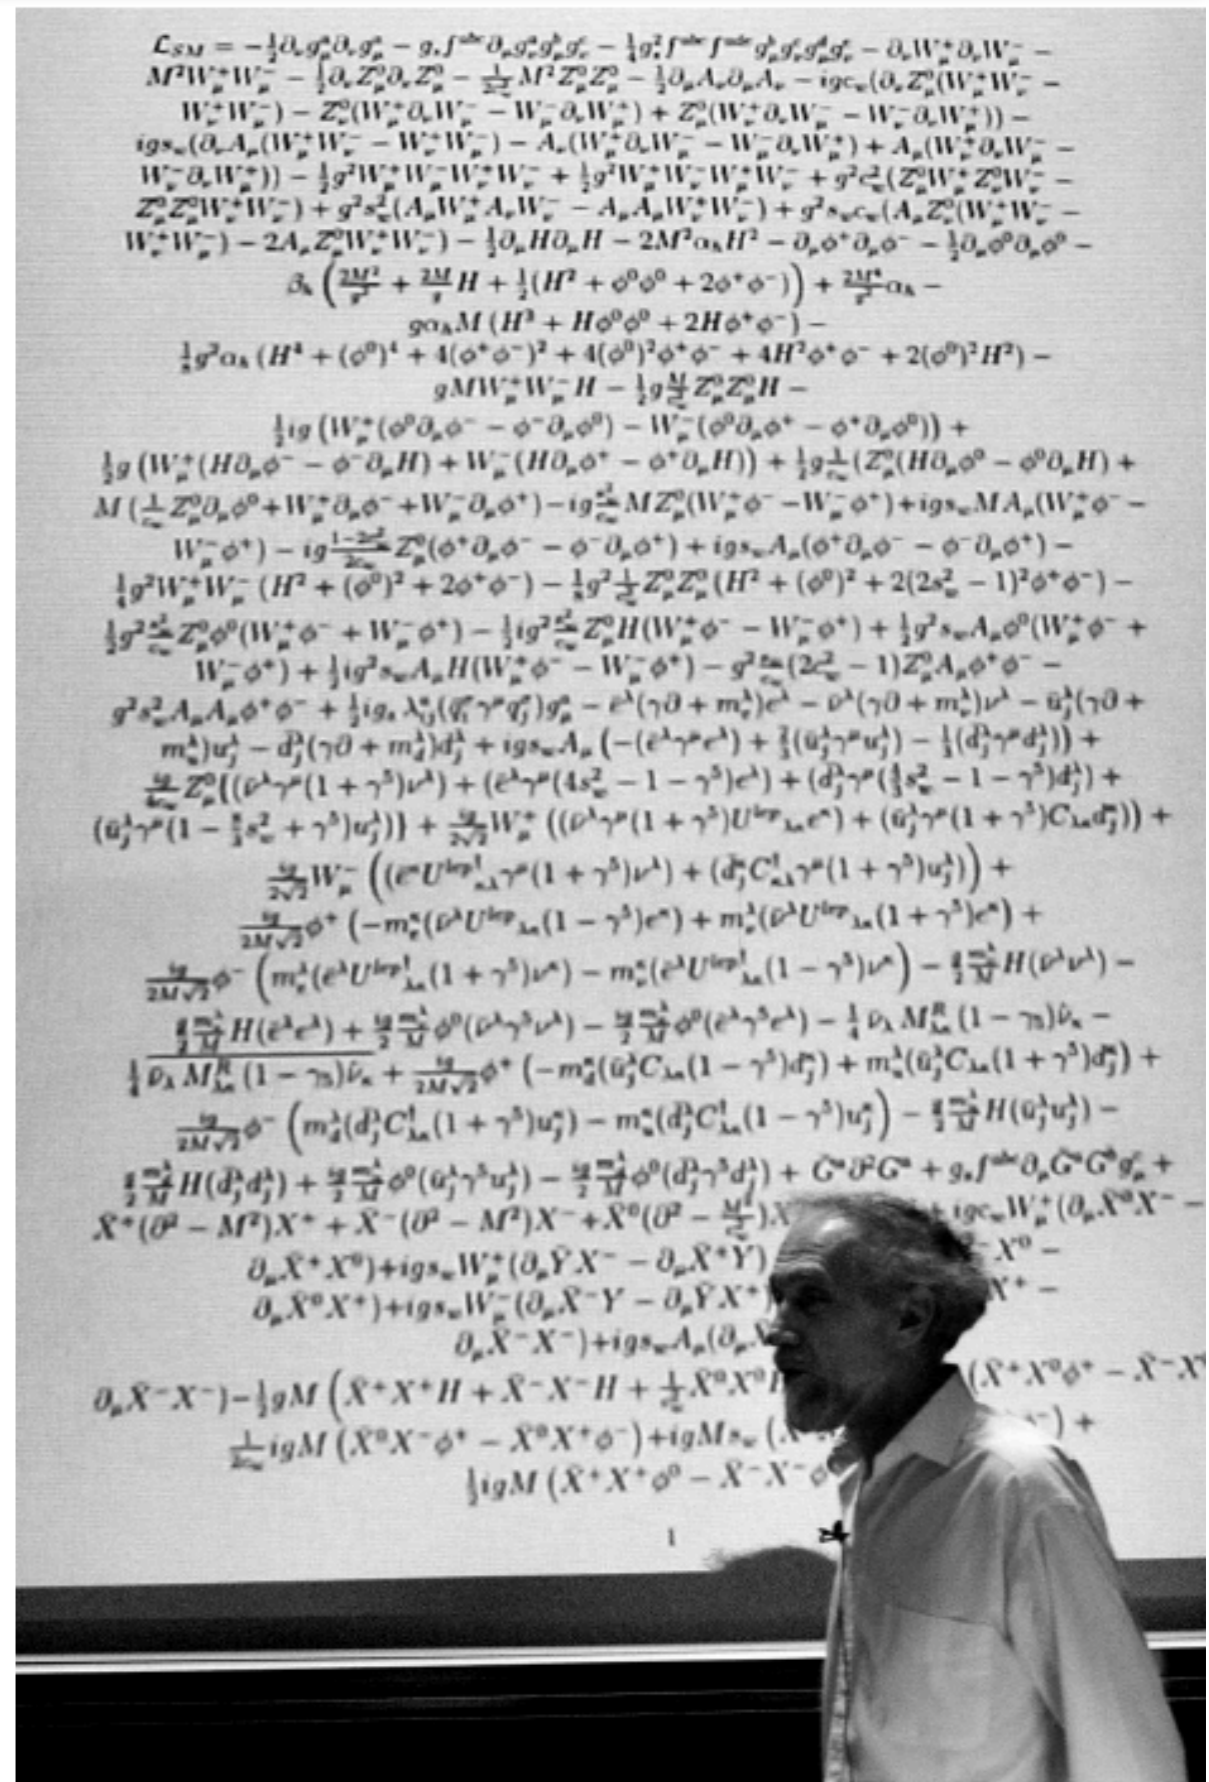 \mathcal{L}_{SM} = -\frac{1}{2}\partial_\nu g^a_\mu \partial_\nu g^a_\mu - g_s f^{abc}\partial_\mu g^a_\nu g^b_\mu g^c_\nu - \frac{1}{4}g_s^2 f^{abc}f^{ade} g^b_\mu g^c_\nu g^d_\mu g^e_\nu - \partial_\nu W^+_\mu \partial_\nu W^-_\mu -
M^2 W^+_\mu W^-_\mu - \frac{1}{2}\partial_\nu Z^0_\mu \partial_\nu Z^0_\mu - \frac{1}{2c_w^2} M^2 Z^0_\mu Z^0_\mu - \frac{1}{2}\partial_\mu A_\nu \partial_\mu A_\nu - igc_w(\partial_\nu Z^0_\mu(W^+_\mu W^-_\nu -
W^+_\nu W^-_\mu) - Z^0_\nu(W^+_\mu \partial_\nu W^-_\mu - W^-_\mu \partial_\nu W^+_\mu) + Z^0_\mu(W^+_\nu \partial_\nu W^-_\mu - W^-_\nu \partial_\nu W^+_\mu)) -
igs_w(\partial_\nu A_\mu(W^+_\mu W^-_\nu - W^+_\nu W^-_\mu) - A_\nu(W^+_\mu \partial_\nu W^-_\mu - W^-_\mu \partial_\nu W^+_\mu) + A_\mu(W^+_\nu \partial_\nu W^-_\mu -
W^-_\nu \partial_\nu W^+_\mu)) - \frac{1}{2}g^2 W^+_\mu W^-_\mu W^+_\nu W^-_\nu + \frac{1}{2}g^2 W^+_\mu W^-_\nu W^+_\mu W^-_\nu + g^2c_w^2(Z^0_\mu W^+_\mu Z^0_\nu W^-_\nu -
Z^0_\mu Z^0_\mu W^+_\nu W^-_\nu) + g^2s_w^2(A_\mu W^+_\mu A_\nu W^-_\nu - A_\mu A_\mu W^+_\nu W^-_\nu) + g^2s_wc_w(A_\mu Z^0_\nu(W^+_\mu W^-_\nu -
W^+_\nu W^-_\mu) - 2A_\mu Z^0_\mu W^+_\nu W^-_\nu) - \frac{1}{2}\partial_\mu H \partial_\mu H - 2M^2\alpha_h H^2 - \partial_\mu\phi^+ \partial_\mu\phi^- - \frac{1}{2}\partial_\mu\phi^0 \partial_\mu\phi^0 -
\beta_h \left(\frac{2M^2}{g^2} + \frac{2M}{g}H + \frac{1}{2}(H^2 + \phi^0\phi^0 + 2\phi^+\phi^-)\right) + \frac{2M^4}{g^2}\alpha_h -
g\alpha_h M (H^3 + H\phi^0\phi^0 + 2H\phi^+\phi^-) -
\frac{1}{8}g^2\alpha_h (H^4 + (\phi^0)^4 + 4(\phi^+\phi^-)^2 + 4(\phi^0)^2\phi^+\phi^- + 4H^2\phi^+\phi^- + 2(\phi^0)^2H^2) -
gMW^+_\mu W^-_\mu H - \frac{1}{2}g\frac{M}{c_w^2}Z^0_\mu Z^0_\mu H -
\frac{1}{2}ig (W^+_\mu(\phi^0\partial_\mu\phi^- - \phi^-\partial_\mu\phi^0) - W^-_\mu(\phi^0\partial_\mu\phi^+ - \phi^+\partial_\mu\phi^0)) +
\frac{1}{2}g (W^+_\mu(H\partial_\mu\phi^- - \phi^-\partial_\mu H) + W^-_\mu(H\partial_\mu\phi^+ - \phi^+\partial_\mu H)) + \frac{1}{2}g\frac{1}{c_w}(Z^0_\mu(H\partial_\mu\phi^0 - \phi^0\partial_\mu H) +
M (\frac{1}{c_w}Z^0_\mu\partial_\mu\phi^0 + W^+_\mu\partial_\mu\phi^- + W^-_\mu\partial_\mu\phi^+) - ig\frac{s_w^2}{c_w}MZ^0_\mu(W^+_\mu\phi^- - W^-_\mu\phi^+) + igs_wMA_\mu(W^+_\mu\phi^- -
W^-_\mu\phi^+) - ig\frac{1-2c_w^2}{2c_w}Z^0_\mu(\phi^+\partial_\mu\phi^- - \phi^-\partial_\mu\phi^+) + igs_wA_\mu(\phi^+\partial_\mu\phi^- - \phi^-\partial_\mu\phi^+) -
\frac{1}{4}g^2W^+_\mu W^-_\mu (H^2 + (\phi^0)^2 + 2\phi^+\phi^-) - \frac{1}{8}g^2\frac{1}{c_w^2}Z^0_\mu Z^0_\mu (H^2 + (\phi^0)^2 + 2(2s_w^2 - 1)^2\phi^+\phi^-) -
\frac{1}{2}g^2\frac{s_w^2}{c_w}Z^0_\mu\phi^0(W^+_\mu\phi^- + W^-_\mu\phi^+) - \frac{1}{2}ig^2\frac{s_w^2}{c_w}Z^0_\mu H(W^+_\mu\phi^- - W^-_\mu\phi^+) + \frac{1}{2}g^2s_wA_\mu\phi^0(W^+_\mu\phi^- +
W^-_\mu\phi^+) + \frac{1}{2}ig^2s_wA_\mu H(W^+_\mu\phi^- - W^-_\mu\phi^+) - g^2\frac{s_w}{c_w}(2c_w^2 - 1)Z^0_\mu A_\mu\phi^+\phi^- -
g^2s_w^2A_\mu A_\mu\phi^+\phi^- + \frac{1}{2}ig_s\lambda^a_{ij}(\bar{q}^\sigma_i\gamma^\mu q^\sigma_j)g^a_\mu - \bar{e}^\lambda(\gamma\partial + m^\lambda_e)e^\lambda - \bar{\nu}^\lambda(\gamma\partial + m^\lambda_\nu)\nu^\lambda - \bar{u}^\lambda_j(\gamma\partial +
m^\lambda_u)u^\lambda_j - \bar{d}^\lambda_j(\gamma\partial + m^\lambda_d)d^\lambda_j + igs_wA_\mu (-(\bar{e}^\lambda\gamma^\mu e^\lambda) + \frac{2}{3}(\bar{u}^\lambda_j\gamma^\mu u^\lambda_j) - \frac{1}{3}(\bar{d}^\lambda_j\gamma^\mu d^\lambda_j)) +
\frac{ig}{4c_w}Z^0_\mu\{(\bar{\nu}^\lambda\gamma^\mu(1 + \gamma^5)\nu^\lambda) + (\bar{e}^\lambda\gamma^\mu(4s_w^2 - 1 - \gamma^5)e^\lambda) + (\bar{d}^\lambda_j\gamma^\mu(\frac{4}{3}s_w^2 - 1 - \gamma^5)d^\lambda_j) +
(\bar{u}^\lambda_j\gamma^\mu(1 - \frac{8}{3}s_w^2 + \gamma^5)u^\lambda_j)\} + \frac{ig}{2\sqrt{2}}W^+_\mu ((\bar{\nu}^\lambda\gamma^\mu(1 + \gamma^5)U^{lep}{}_{\lambda\kappa}e^\kappa) + (\bar{u}^\lambda_j\gamma^\mu(1 + \gamma^5)C_{\lambda\kappa}d^\kappa_j)) +
\frac{ig}{2\sqrt{2}}W^-_\mu ((\bar{e}^\kappa U^{lep\dagger}{}_{\kappa\lambda}\gamma^\mu(1 + \gamma^5)\nu^\lambda) + (\bar{d}^\kappa_j C^\dagger_{\kappa\lambda}\gamma^\mu(1 + \gamma^5)u^\lambda_j)) +
\frac{ig}{2M\sqrt{2}}\phi^+ (-m^\kappa_e(\bar{\nu}^\lambda U^{lep}{}_{\lambda\kappa}(1 - \gamma^5)e^\kappa) + m^\lambda_\nu(\bar{\nu}^\lambda U^{lep}{}_{\lambda\kappa}(1 + \gamma^5)e^\kappa) +
\frac{ig}{2M\sqrt{2}}\phi^- (m^\lambda_e(\bar{e}^\lambda U^{lep\dagger}{}_{\lambda\kappa}(1 + \gamma^5)\nu^\kappa) - m^\kappa_\nu(\bar{e}^\lambda U^{lep\dagger}{}_{\lambda\kappa}(1 - \gamma^5)\nu^\kappa) - \frac{g}{2}\frac{m^\lambda_\nu}{M}H(\bar{\nu}^\lambda\nu^\lambda) -
\frac{g}{2}\frac{m^\lambda_e}{M}H(\bar{e}^\lambda e^\lambda) + \frac{ig}{2}\frac{m^\lambda_\nu}{M}\phi^0(\bar{\nu}^\lambda\gamma^5\nu^\lambda) - \frac{ig}{2}\frac{m^\lambda_e}{M}\phi^0(\bar{e}^\lambda\gamma^5e^\lambda) - \frac{1}{4}\bar{\nu}_\lambda M^R_{\lambda\kappa}(1 - \gamma_5)\hat{\nu}_\kappa -
\frac{1}{4}\overline{\bar{\nu}_\lambda M^R_{\lambda\kappa}(1 - \gamma_5)\hat{\nu}_\kappa} + \frac{ig}{2M\sqrt{2}}\phi^+ (-m^\kappa_d(\bar{u}^\lambda_jC_{\lambda\kappa}(1 - \gamma^5)d^\kappa_j) + m^\lambda_u(\bar{u}^\lambda_jC_{\lambda\kappa}(1 + \gamma^5)d^\kappa_j) +
\frac{ig}{2M\sqrt{2}}\phi^- (m^\lambda_d(\bar{d}^\lambda_jC^\dagger_{\lambda\kappa}(1 + \gamma^5)u^\kappa_j) - m^\kappa_u(\bar{d}^\lambda_jC^\dagger_{\lambda\kappa}(1 - \gamma^5)u^\kappa_j) - \frac{g}{2}\frac{m^\lambda_u}{M}H(\bar{u}^\lambda_ju^\lambda_j) -
\frac{g}{2}\frac{m^\lambda_d}{M}H(\bar{d}^\lambda_jd^\lambda_j) + \frac{ig}{2}\frac{m^\lambda_u}{M}\phi^0(\bar{u}^\lambda_j\gamma^5u^\lambda_j) - \frac{ig}{2}\frac{m^\lambda_d}{M}\phi^0(\bar{d}^\lambda_j\gamma^5d^\lambda_j) + \bar{G}^a\partial^2G^a + g_sf^{abc}\partial_\mu\bar{G}^aG^bg^c_\mu +
\bar{X}^+(\partial^2 - M^2)X^+ + \bar{X}^-(\partial^2 - M^2)X^- + \bar{X}^0(\partial^2 - \frac{M^2}{c_w^2})X + igc_wW^+_\mu(\partial_\mu\bar{X}^0X^- -
\partial_\mu\bar{X}^+X^0) + igs_wW^+_\mu(\partial_\mu\bar{Y}X^- - \partial_\mu\bar{X}^+Y) - X^0 -
\partial_\mu\bar{X}^0X^+) + igs_wW^-_\mu(\partial_\mu\bar{X}^-Y - \partial_\mu\bar{Y}X^+) X^+ -
\partial_\mu\bar{X}^-X^-) + igs_wA_\mu(\partial_\mu
\partial_\mu\bar{X}^-X^-) - \frac{1}{2}gM (\bar{X}^+X^+H + \bar{X}^-X^-H + \frac{1}{c_w^2}\bar{X}^0X^0 (\bar{X}^+X^0\phi^+ - \bar{X}^-X
\frac{1}{2c_w}igM (\bar{X}^0X^-\phi^+ - \bar{X}^0X^+\phi^-) + igMs_w ( ) +
\frac{1}{2}igM (\bar{X}^+X^+\phi^0 - \bar{X}^-X^-\phi
1